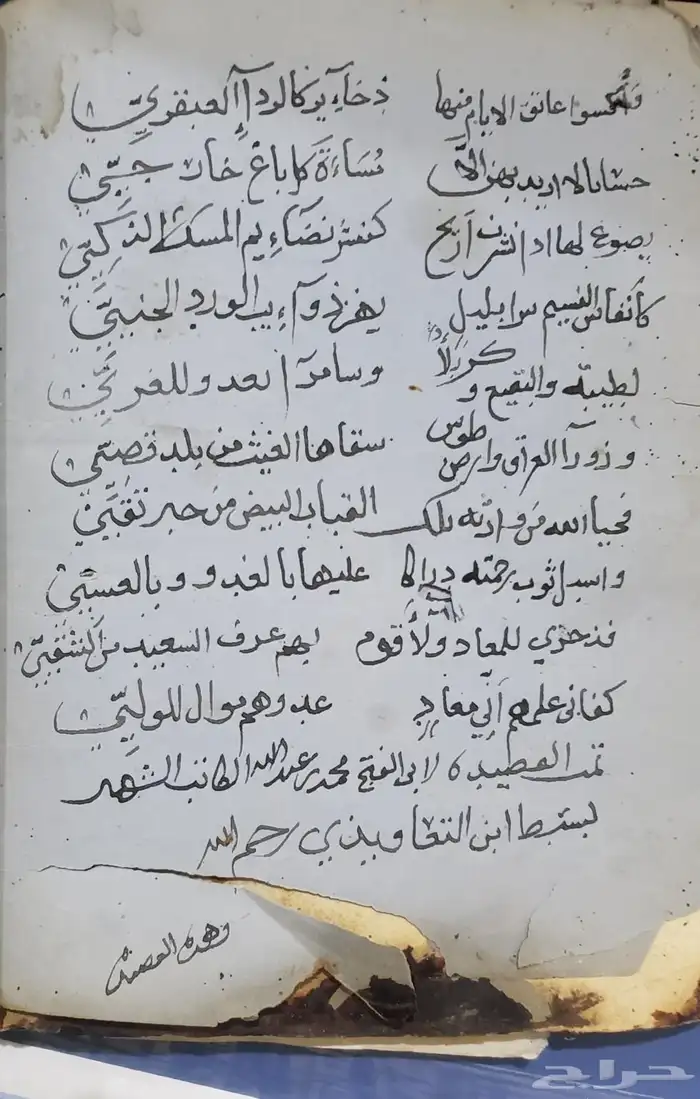 وأكسوا عاتق الايام منها ذخاءير كالرداء العبقريّ
حسانا لا اريد بهن الا مُساءَة كل باغ خارجيّ
يضوع لها اذا نشرت أريج كنشر لطاءيم المسك الذكيّ
كأنفاس النسيم سرا بليل يهز ذواءيب الورد الجنيّ
لطيبة والبقيع وكربلا وسامرا تعد وللغريّ
وزورآء العراق وارض طوس سقاها الغيث من بلد قصيّ
فحيا الله من وارته تلك القباب البيض من حبر نقيّ
واسبل ثوب رحمته دراكا عليها بالغدو وبالعشيّ
فذخري للمعاد ولأ قوم بهم عرف السعيد من الشقيّ
كفانى علمهم أني معادٍ عدوهم موال للوليّ
تمت القصيده لابى الفتح محمد بن عبد الله الكاتب الشهير
بسبط ابن التعاويذي رحمه الله
وهذه القصيدة
حراج